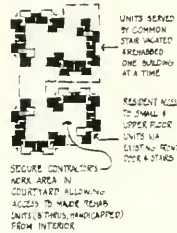 UNITS SERVED
BY COMMON
STAIR VACATED
& REHABBED
ONE BUILDING
AT A TIME
RESIDENT ACCESS
TO SMALL &
UPPER FLOOR
UNITS VIA
EXISTING FRONT
DOOR & STAIRS
SECURE CONTRACTOR'S
WORK AREA IN
COURTYARD ALLOWING
ACCESS TO MAJOR REHAB
UNITS (& THRUS, HANDICAPPED)
FROM INTERIOR